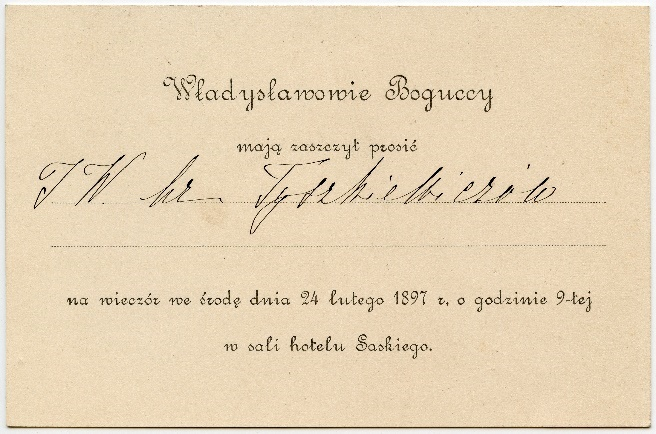 Władysławowie Boguccy
mają zaszczyt prosić
J W. hr Tyszkiewiczów
na wieczór we środę dnia 24 lutego 1897 r. o godzinie 9-tej
w sali hotelu Saskiego.